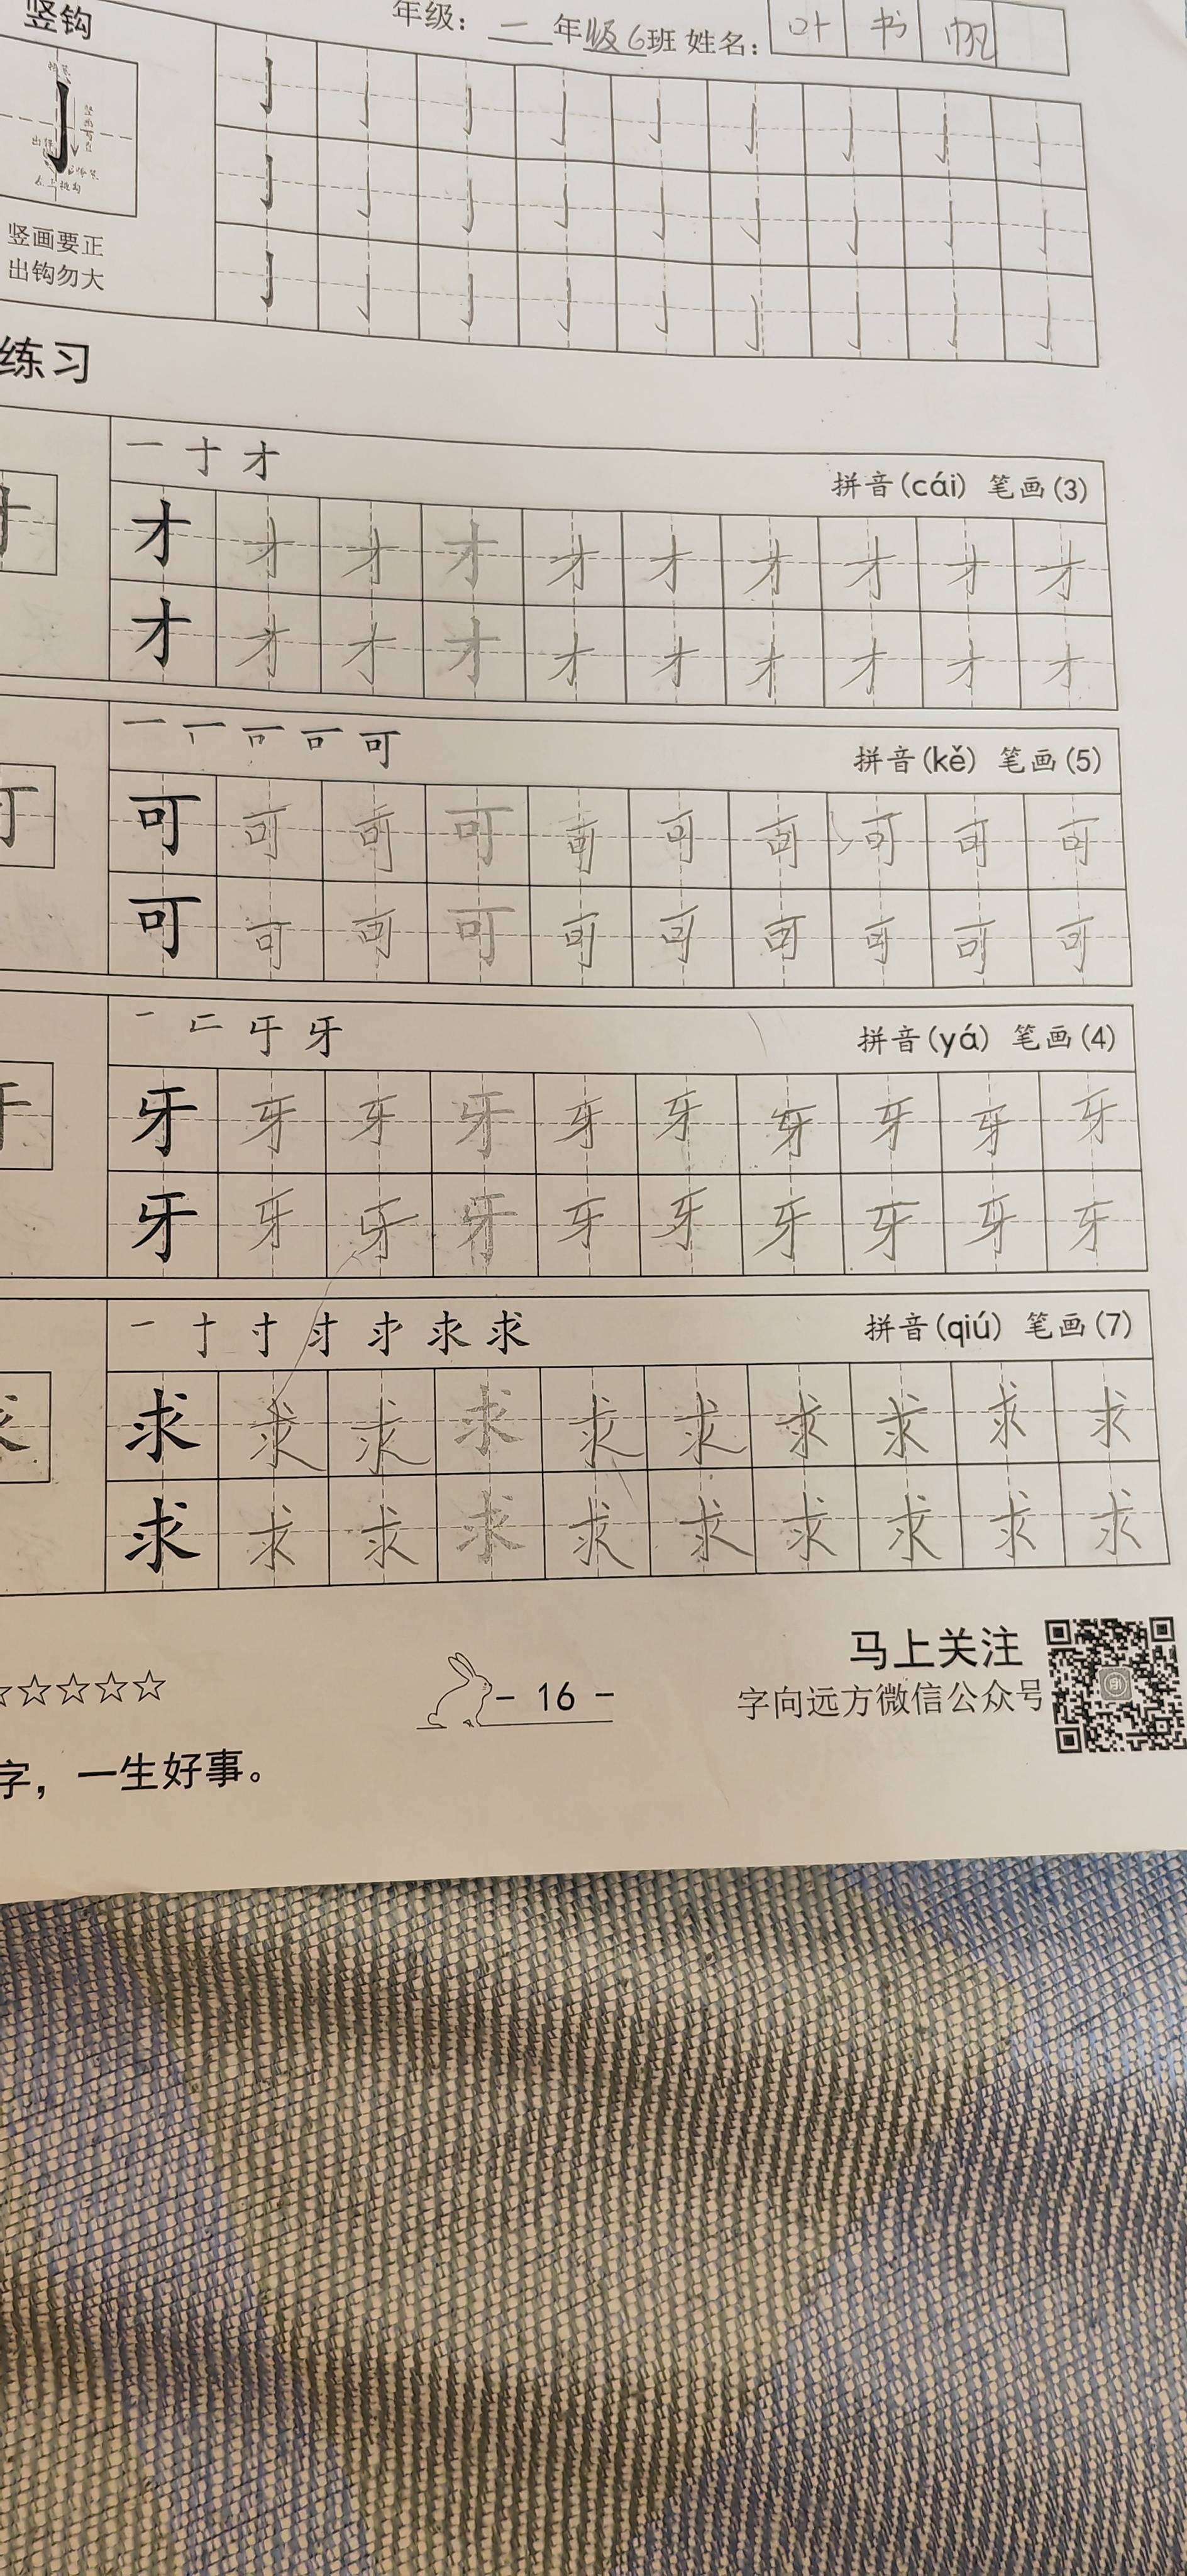 竖钩
年级：二年级6班 姓名：叶书帆
竖画要正
出钩勿大
亅亅亅亅亅亅亅亅亅
亅亅亅亅亅亅亅亅亅
亅亅亅亅亅亅亅亅亅
练习
一 十 才
拼音(cái) 笔画(3)
才才才才才才才才才才
才才才才才才才才才才
拼音(kě) 笔画(5)
可可可可可可可可可可
可可可可可可可可可可
拼音(yá) 笔画(4)
牙牙牙牙牙牙牙牙牙牙
牙牙牙牙牙牙牙牙牙牙
拼音(qiú) 笔画(7)
求求求求求求求求求求
求求求求求求求求求求
☆☆☆☆☆
- 16 -
马上关注
字向远方微信公众号
字，一生好事。